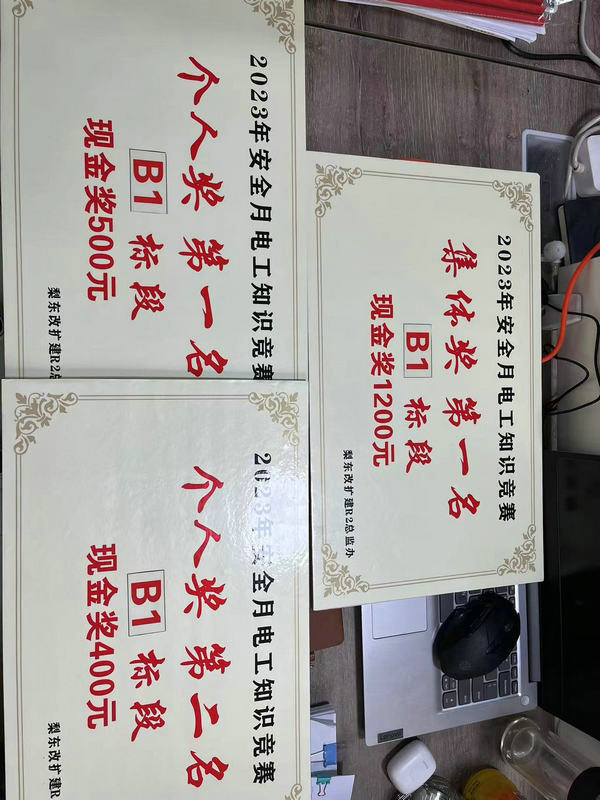 2023年安全月电工知识竞赛
个人奖 第一名
B1 标段
现金奖500元
梨东改扩建R2总
2023年安全月电工知识竞赛
集体奖 第一名
B1 标段
现金奖1200元
梨东改扩建R2总监办
2023年安全月电工知识竞赛
个人奖 第二名
B1 标段
现金奖400元
梨东改扩建R
Lenovo